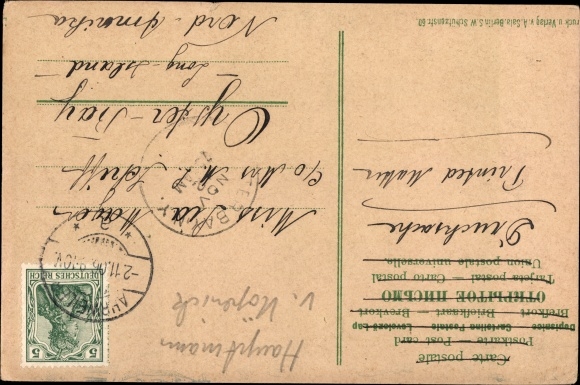 Carte postale
Postkarte — Post card
Dopisnice — Cartolina Postale — Levelező-Lap
Brefkort — Briefkaart — Brevkort
ОТКРЫТОЕ ПИСЬМО
Tarjeta postal — Carto postal
Union postale universelle
Drucksache
Printed Matter
Hauptmann
v. Köpenick
5 5
DEUTSCHES REICH
2.11.06
NOV
Miss Lea Mayer
c/o Mrs M. L. Schiff
Oyster-Bay
Long-Island
Nord-Amerika
Druck u Verlag v. A. Sala, Berlin S.W. Schützenstr 60.